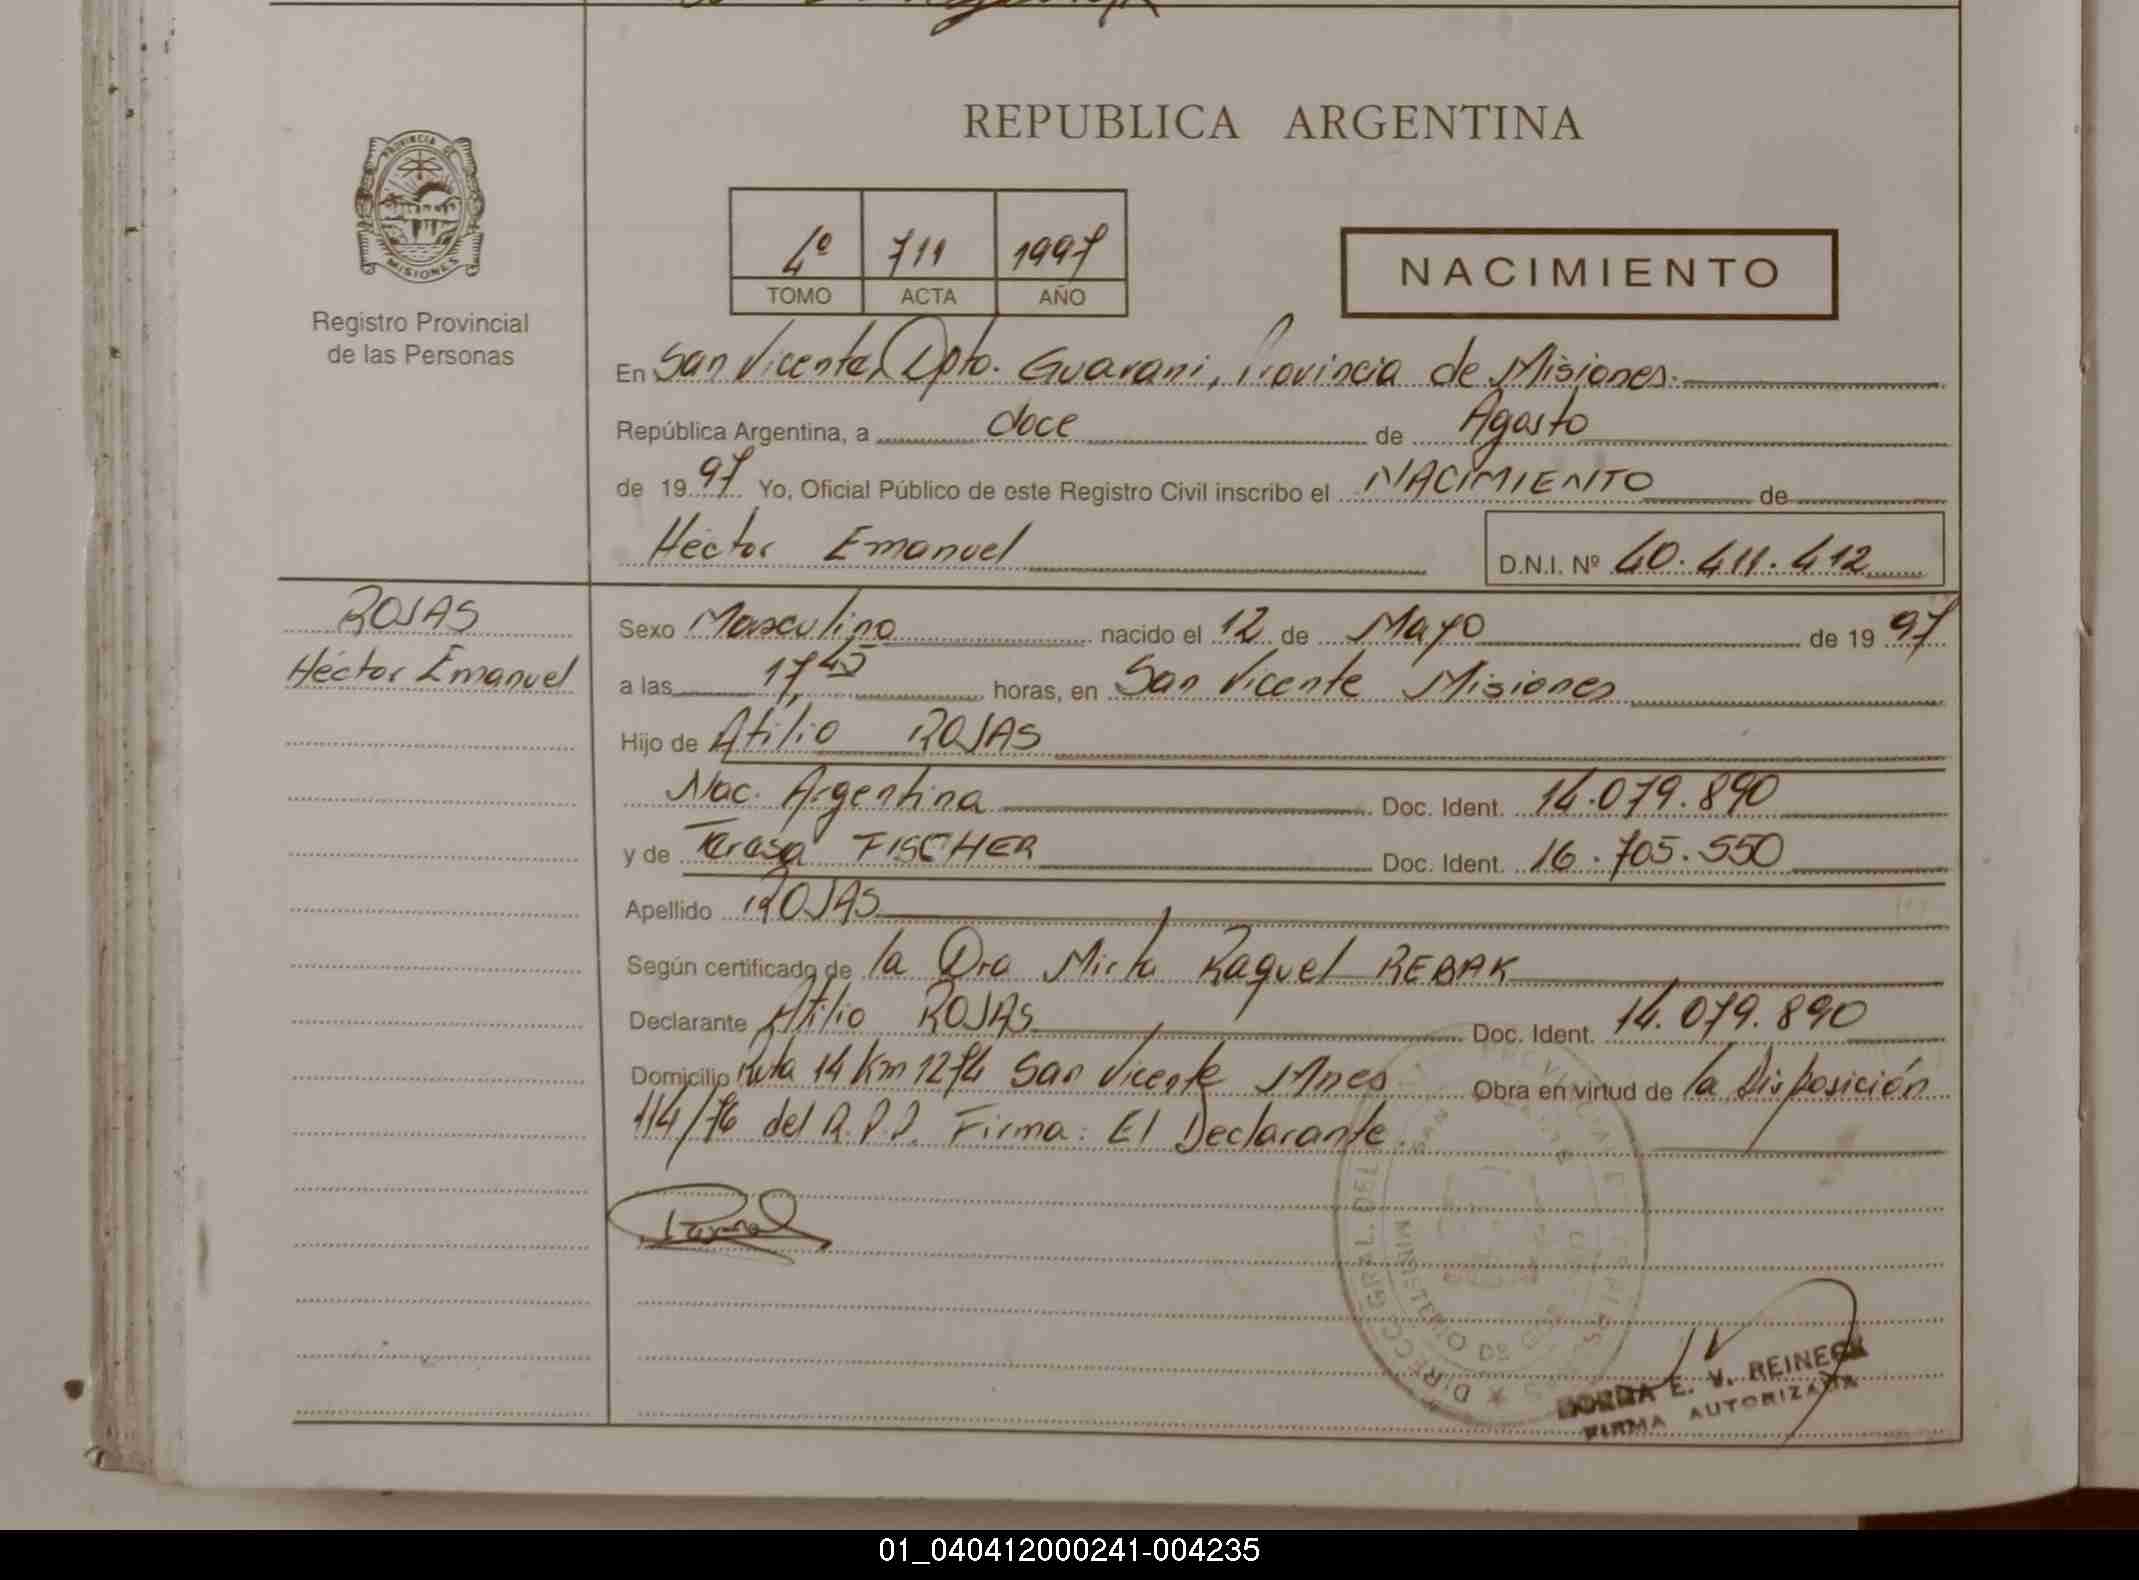 REPUBLICA ARGENTINA
PROVINCIA DE
MISIONES
Registro Provincial
de las Personas
4º 711 1997
TOMO ACTA AÑO
NACIMIENTO
En San Vicente, Dpto. Guarani, Provincia de Misiones.
República Argentina, a doce de Agosto
de 1997 Yo, Oficial Público de este Registro Civil inscribo el NACIMIENTO de
Héctor Emanuel D.N.I. Nº 40.411.412
ROJAS
Héctor Emanuel
Sexo Masculino nacido el 12 de Mayo de 1997
a las 17,45 horas, en San Vicente Misiones
Hijo de Atilio ROJAS
Nac. Argentina Doc. Ident. 14.079.890
y de Teresa FISCHER Doc. Ident. 16.705.550
Apellido ROJAS
Según certificado de la Dra Mirta Raquel REBAK
Declarante Atilio ROJAS Doc. Ident. 14.079.890
Domicilio Ruta 14 Km 1274 San Vicente Mnes Obra en virtud de la Disposición
114/76 del R.P.P. Firma: El Declarante.
DIRECC. GRAL. DEL
MINISTERIO DE
SAN
E. V. REINECK
FIRMA AUTORIZADA
01_040412000241-004235